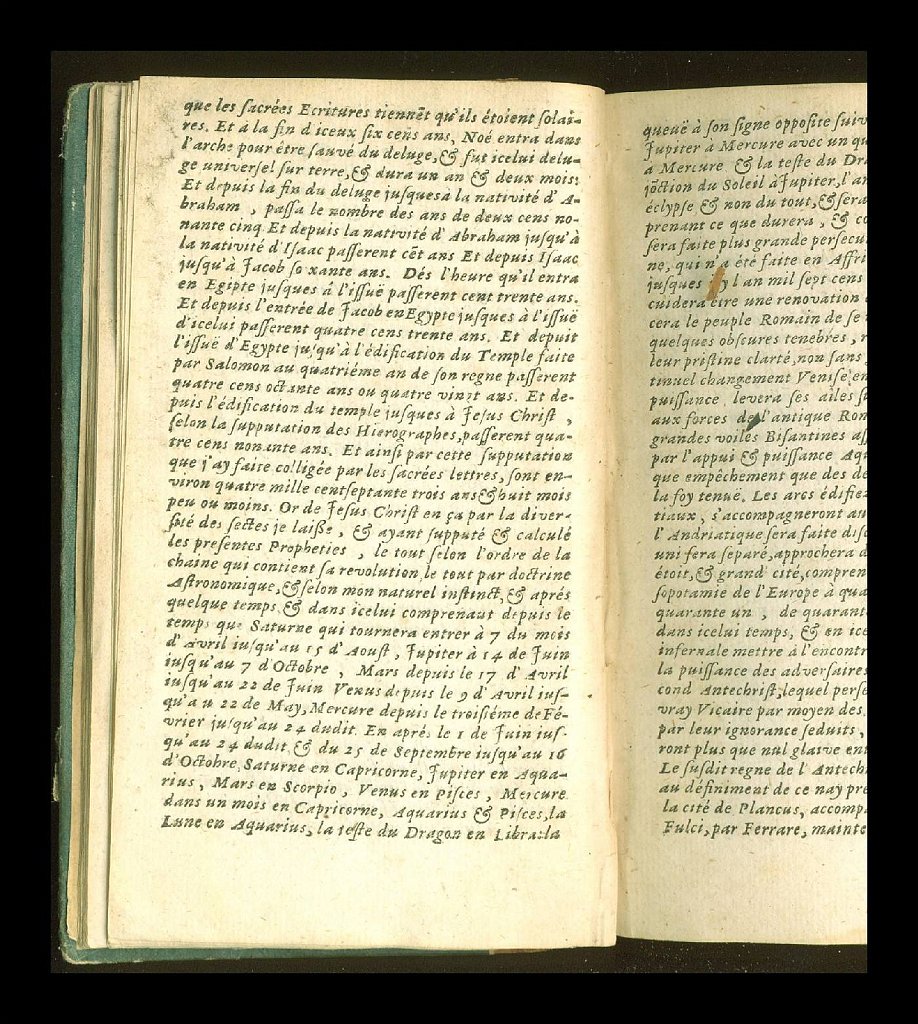 que les sacrées Ecritures tiennēt qu'ils étoient solai-
res. Et à la fin d iceux six cens ans, Noé entra dans
l'arche pour être sauvé du deluge, & fut icelui delu-
ge universel sur terre, & dura un an & deux mois:
Et depuis la fin du deluge jusques à la nativité d' A-
braham , passa le nombre des ans de deux cens no-
nante cinq Et depuis la nativité d' Abraham jusqu'à
la nativité d'Isaac passerent cēt ans Et depuis Isaac
jusqu'à Jacob so xante ans. Dés l'heure qu'il entra
en Egipte jusques à l'issuë passerent cent trente ans.
Et depuis l'entrée de Jacob en Egypte jusques à l'issuë
d'icelui passerent quatre cens trente ans. Et depuit
l'issuë d'Egypte jusqu'à l'édification du Temple faite
par Salomon au quatriéme an de son regne passerent
quatre cens octante ans ou quatre vingt ans. Et de-
puis l'édification du temple jusques à Jesus Christ ,
selon la supputation des Hierographes, passerent qua-
tre cens nonante ans. Et ainsi par cette supputation
que j'ay faite colligée par les sacrées lettres, sont en-
viron quatre mille cent septante trois ans & huit mois
peu ou moins. Or de Jesus Christ en ça par la diver-
sité des sectes je laisse , & ayant supputé & calculé
les presentes Propheties , le tout selon l'ordre de la
chaine qui contient sa revolution, le tout par doctrine
Astronomique, & selon mon naturel instinct, & aprés
quelque temps, & dans icelui comprenant depuis le
temps que Saturne qui tournera entrer à 7 du mois
d' Avril iusqu'au 15 d' Aoust , Jupiter à 14 de Juin
iusqu'au 7 d'Octobre , Mars depuis le 17 d' Avril
iusqu'au 22 de Juin Vexus depuis le 9 d' Avril ius-
qu'a u 22 de May, Mercure depuis le troisiéme de Fé-
vrier jusqu'au 24 dudit. En aprés le 1 de Juin jus-
qu'au 24 dudit, & du 25 de Septembre iusqu'au 16
d'Octobre, Saturne en Capricorne, Jupiter en Aqua-
rius , Mars en Scorpio , Venus en Pisces , Mercure
dans un mois en Capricorne, Aquarius & Pisces, la
Lune en Aquarius, la teste du Dragon en Libra: la
queuë à son signe opposite suiv
Jupiter à Mercure avec un qu
a Mercure & la teste du Dra
jōction du Soleil à Jupiter, l'an
éclypse & non du tout, & sera
prenant ce que durera , & co
sera faite plus grande persecu
ne, qui n'a été faite en Affri
jusques l an mil sept cens
cuidera être une renovation
cera le peuple Romain de se
quelques obscures tenebres , r
leur pristine clarté, non sans
tinuel changement Venise en
puissance levera ses ailes si
aux forces de l'antique Rom
grandes voiles Bisantines ass
par l'appui & puissance Aqu
que empêchement que des de
la foy tenuë. Les arcs édifiez
tiaux , s'accompagneront au
l' Andriatique sera faite disc
uni sera separé, approchera d
étoit, & grand cité, compren
sopotamie de l'Europe à qua
quarante un , de quarant
dans icelui temps, & en ice
infernale mettre à l'encontr
la puissance des adversaires
cond Antechrist, lequel perse
vray Vicaire par moyen des
par leur ignorance seduits ,
ront plus que nul glaive ent
Le susdit regne de l' Antech
au définiment de ce nay pre
la cité de Plancus, accomp
Fulci, par Ferrare, mainte